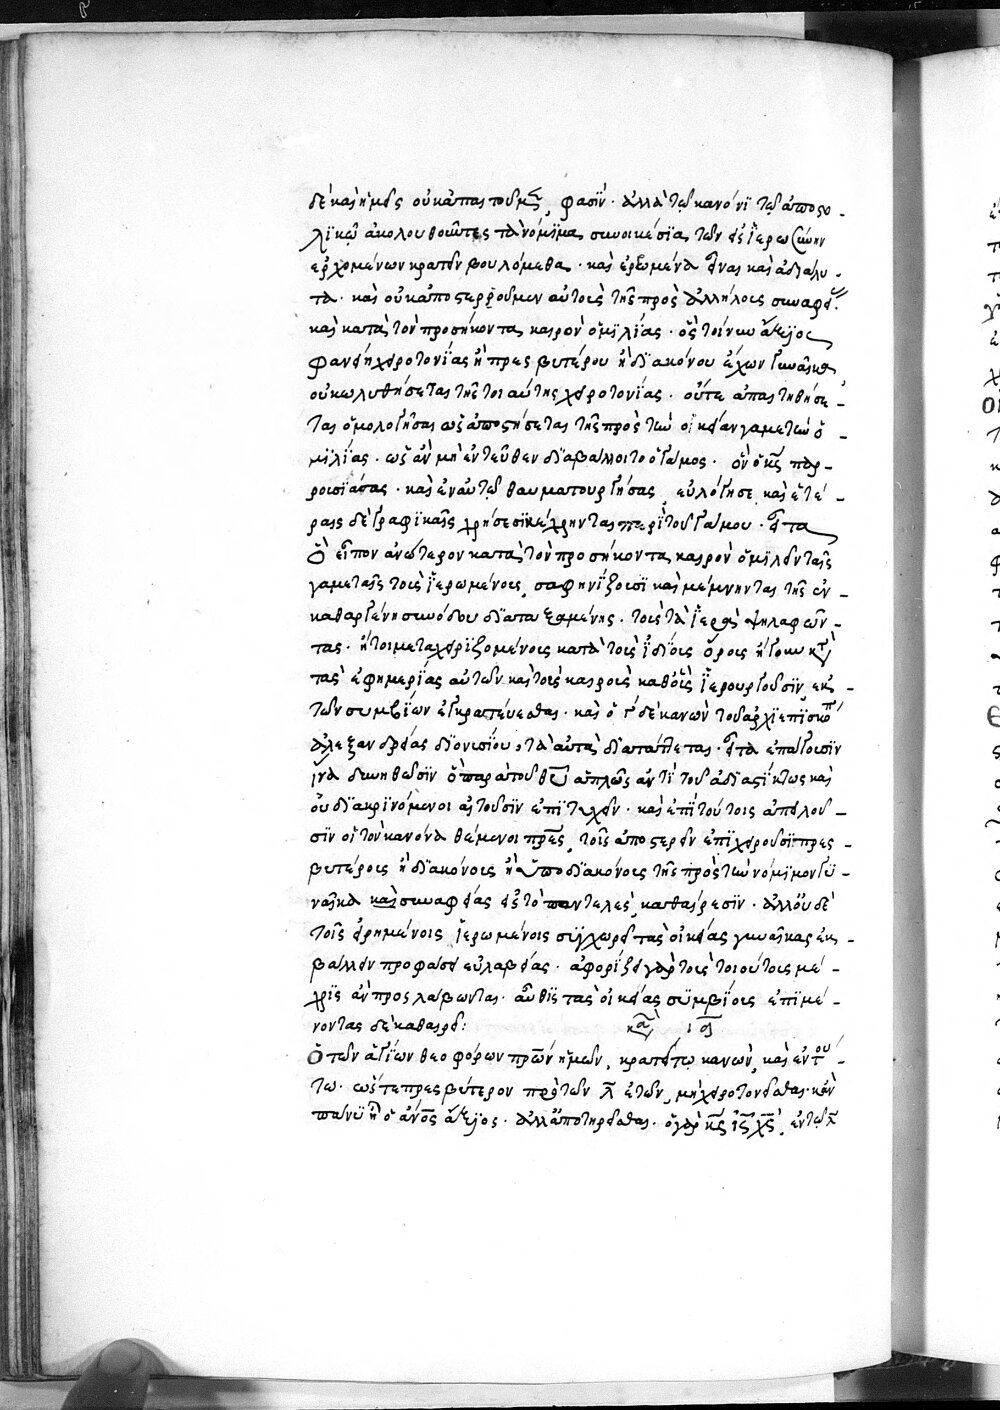 δὲ καὶ ἡμεῖς οὐκ ἀπαιτοῦμεν, φασὶν. ἀλλὰ τῷ κανόνι τῷ ἀποστο-
λικῷ ἀκολουθοῦντες τὰ νόμιμα συνοικέσια τῶν εἰς ἱερωσύνην
ἐρχομένων κρατεῖν βουλόμεθα. καὶ ἐρρωμένα εἶναι καὶ ἀδιάλυ-
τα. καὶ οὐκ ἀποστερροῦμεν αὐτοὺς τῆς πρὸς ἀλλήλους συναφείας.
καὶ κατὰ τὸν προσήκοντα καιρὸν ὁμιλίας. ὃς τοίνυν ἄξιος
φανείη χειροτονίας ἢ πρεσβυτέρου ἢ διακόνου ἔχων γυναῖκα
οὐ κωλυθήσεται τῆς τοιαύτης χειροτονίας. οὔτε ἀπαιτηθήσε-
ται ὁμολογῆσαι ὡς ἀποστήσεται τῆς πρὸς τὴν οἰκείαν γαμετὴν ὁ-
μιλίας. ὡς ἂν μὴ ἐντεῦθεν διαβάλλοιτο ὁ γάμος. ὃν ὁ κς παρ-
ρουσιάσας. καὶ ἐν αὐτῷ θαυματουργήσας, εὐλόγησε, καὶ ἑτέ-
ραις δὲ γραφικαῖς χρήσεσι κέχρηνται περὶ τοῦ γάμου. εἶτα
ὃ εἶπον ἀνώτερον κατὰ τὸν προσήκοντα καιρὸν ὁμιλεῖν ταῖς
γαμεταῖς τοὺς ἱερωμένους, σαφηνίζουσι καὶ μέμνηνται τῆς ἐν
καθαργένη συνόδου διαταξαμένης. τοὺς τὰ ἱερὰ ψηλαφῶν-
τας. ἤτοι μεταχειριζομένους κατὰ τοὺς ἰδίους ὅρους ἤγουν κατὰ
τὰς ἐφημερίας αὐτῶν καὶ τοὺς καιροὺς καθ' οὓς ἱερουργοῦσιν, ἐκ
τῶν συμβίων ἐγκρατεύεσθαι. καὶ ὁ γ' δὲ κανὼν τοῦ ἀρχιεπισκόπ
ἀλεξανδρείας διονυσίου, τὰ αὐτὰ διατάττεται. εἶτα ἐπάγουσιν
ἵνα δυνηθῶσιν ὃ παρὰ τοῦ θυ ἁπλῶς ἀντὶ τοῦ ἀδιαστίκτως καὶ
οὐ διακρινόμενοι αἰτοῦσιν ἐπιτυχεῖν. καὶ ἐπὶ τούτοις ἀπειλοῦ-
σιν οἱ τὸν κανόνα θέμενοι πρες, τοῖς ἀποστερεῖν ἐπιχειροῦσι πρεσ-
βυτέρους ἢ διακόνους ἢ ὑποδιακόνους τῆς πρὸς τὴν νόμιμον γυ-
ναῖκα καὶ συναφείας εἰς τὸ παντελὲς, καθαίρεσιν. ἀλλ' οὐδὲ
τοῖς εἰρημένοις ἱερωμένοις συγχωρεῖ τὰς οἰκείας γυναῖκας ἐκ-
βάλλειν προφάσει εὐλαβείας. ἀφορίζει γὰρ τοὺς τοιούτους μέ-
χρις ἂν προσλάβωνται. αὖθις τὰς οἰκείας συμβίους ἐπιμέ-
νοντας δὲ καθαιρεῖ:
κα ιδ
Ὁ τῶν ἁγίων θεοφόρων πρων ἡμῶν, κρατείτω κανὼν, καὶ ἐν τού-
τω. ὥστε πρεσβύτερον πρὸ τῶν λ ἐτῶν, μὴ χειροτονεῖσθαι. κἂν
πάνυ ἢ ὁ ἀνος ἄξιος. ἀλλ' ἀποτηρεῖσθαι. ὁ γὰρ κς ις χς, ἐν τῷ λ